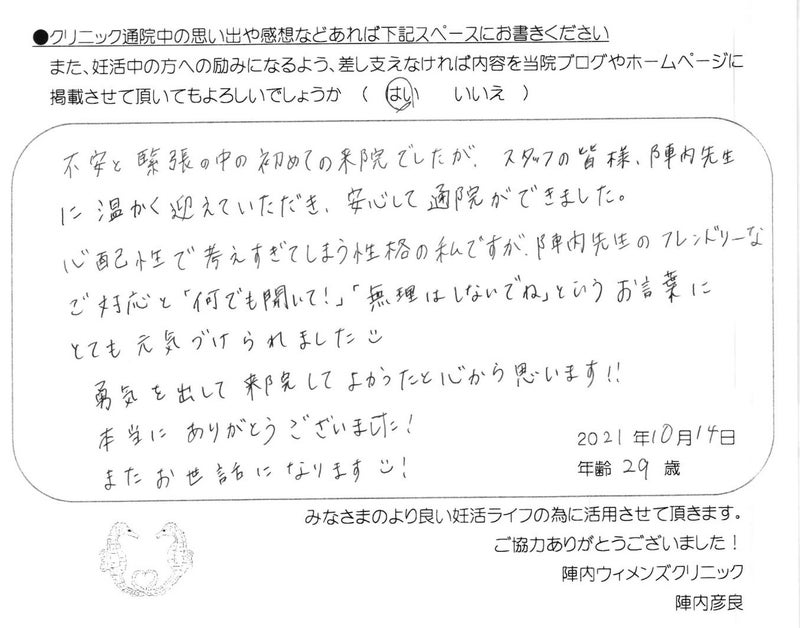 ●クリニック通院中の思い出や感想などあれば下記スペースにお書きください
また、妊活中の方への励みになるよう、差し支えなければ内容を当院ブログやホームページに
掲載させて頂いてもよろしいでしょうか （ はい いいえ ）
不安と緊張の中の初めての来院でしたが、スタッフの皆様、陣内先生
に温かく迎えていただき、安心して通院ができました。
心配性で考えすぎてしまう性格の私ですが、陣内先生のフレンドリーな
ご対応と「何でも聞いて!」「無理はしないでね」というお言葉に
とても元気づけられました
勇気を出して来院してよかったと心から思います!!
本当にありがとうございました!
またお世話になります!
2021年10月14日
年齢 29 歳
みなさまのより良い妊活ライフの為に活用させて頂きます。
ご協力ありがとうございました！
陣内ウィメンズクリニック
陣内彦良